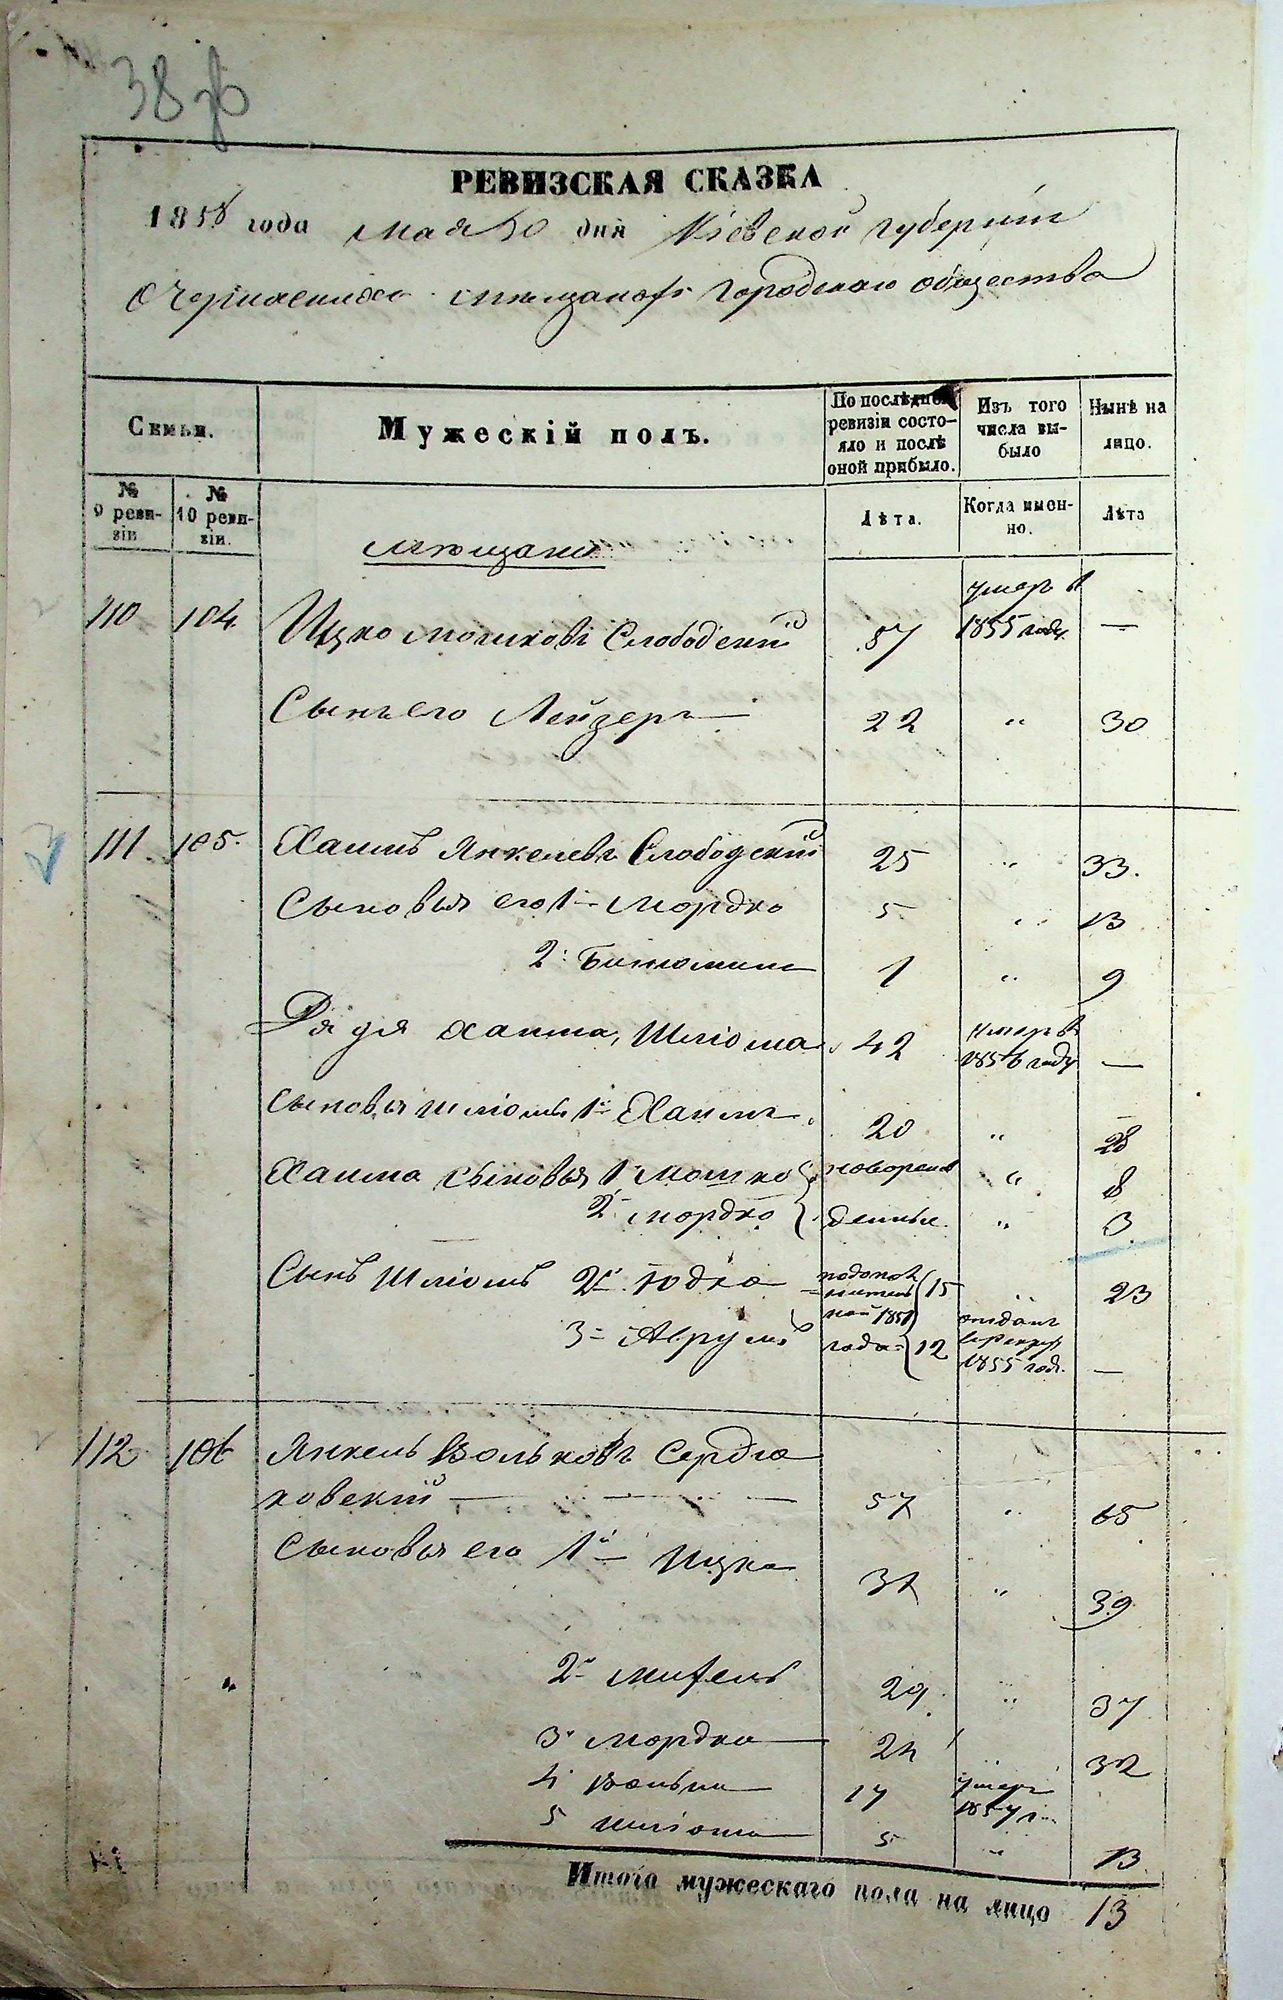 38 об
РЕВИЗСКАЯ СКАЗКА
1858 года мая 10 дня Кіевской губерніи
О Черкаскихъ мѣщанахъ Городскаго общества
Семьи.
Мужескій полъ.
По послѣдней ревизіи состо-
яло и послѣ
оной прибыло.
Изъ того
числа вы-
было
Нынѣ на
лицо.
№
9 реви-
зіи
№
10 реви-
зіи.
Лѣта.
Когда имен-
но.
Лѣта
мѣщане
110 104 Ицко Мошковъ Слободскій 57 умеръ в
1855 году. —
Сынъ его Лейзеръ 22 „ 30
111 105. Хаимъ Янкелевъ Слободскій 25 „ 33.
Сыновья его 1й Мордко 5 „ 13
2: Бинюминъ 1 „ 9
Дядя Хаима, Шліома 42 умеръ в
1856 году —
сыновья Шліомы 1й Хаимъ 20 „ 28
Хаима сыновья 1 Мошко новорож „ 8
2 Мордко денные. „ 3
Сынъ Шліомы 2й Юдко 15 „ 23
3й Аврумъ года 12 отданъ
в рекрут
1855 года. —
112 106 Янкель Вольковъ Сердю
ковскій 57 „ 65
Сыновья его 1й Ицко 31 „ 39
„ 2й 29. „ 37
3й Мордко 24 „ 32
4 Волько 17 умеръ
1857 г.
5 Шліома 5 „ 13
Итого мужескаго пола на лицо 13